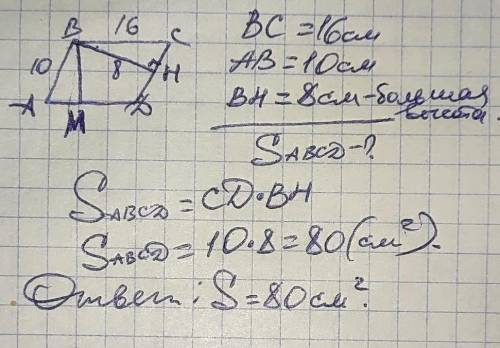 B 16 C
10 8 H
A M D
BC = 16 см
AB = 10 см
BH = 8 см - большая
высота.
SABCD - ?
SABCD = CD · BH
SABCD = 10 · 8 = 80 (см²).
Ответ: S = 80 см².